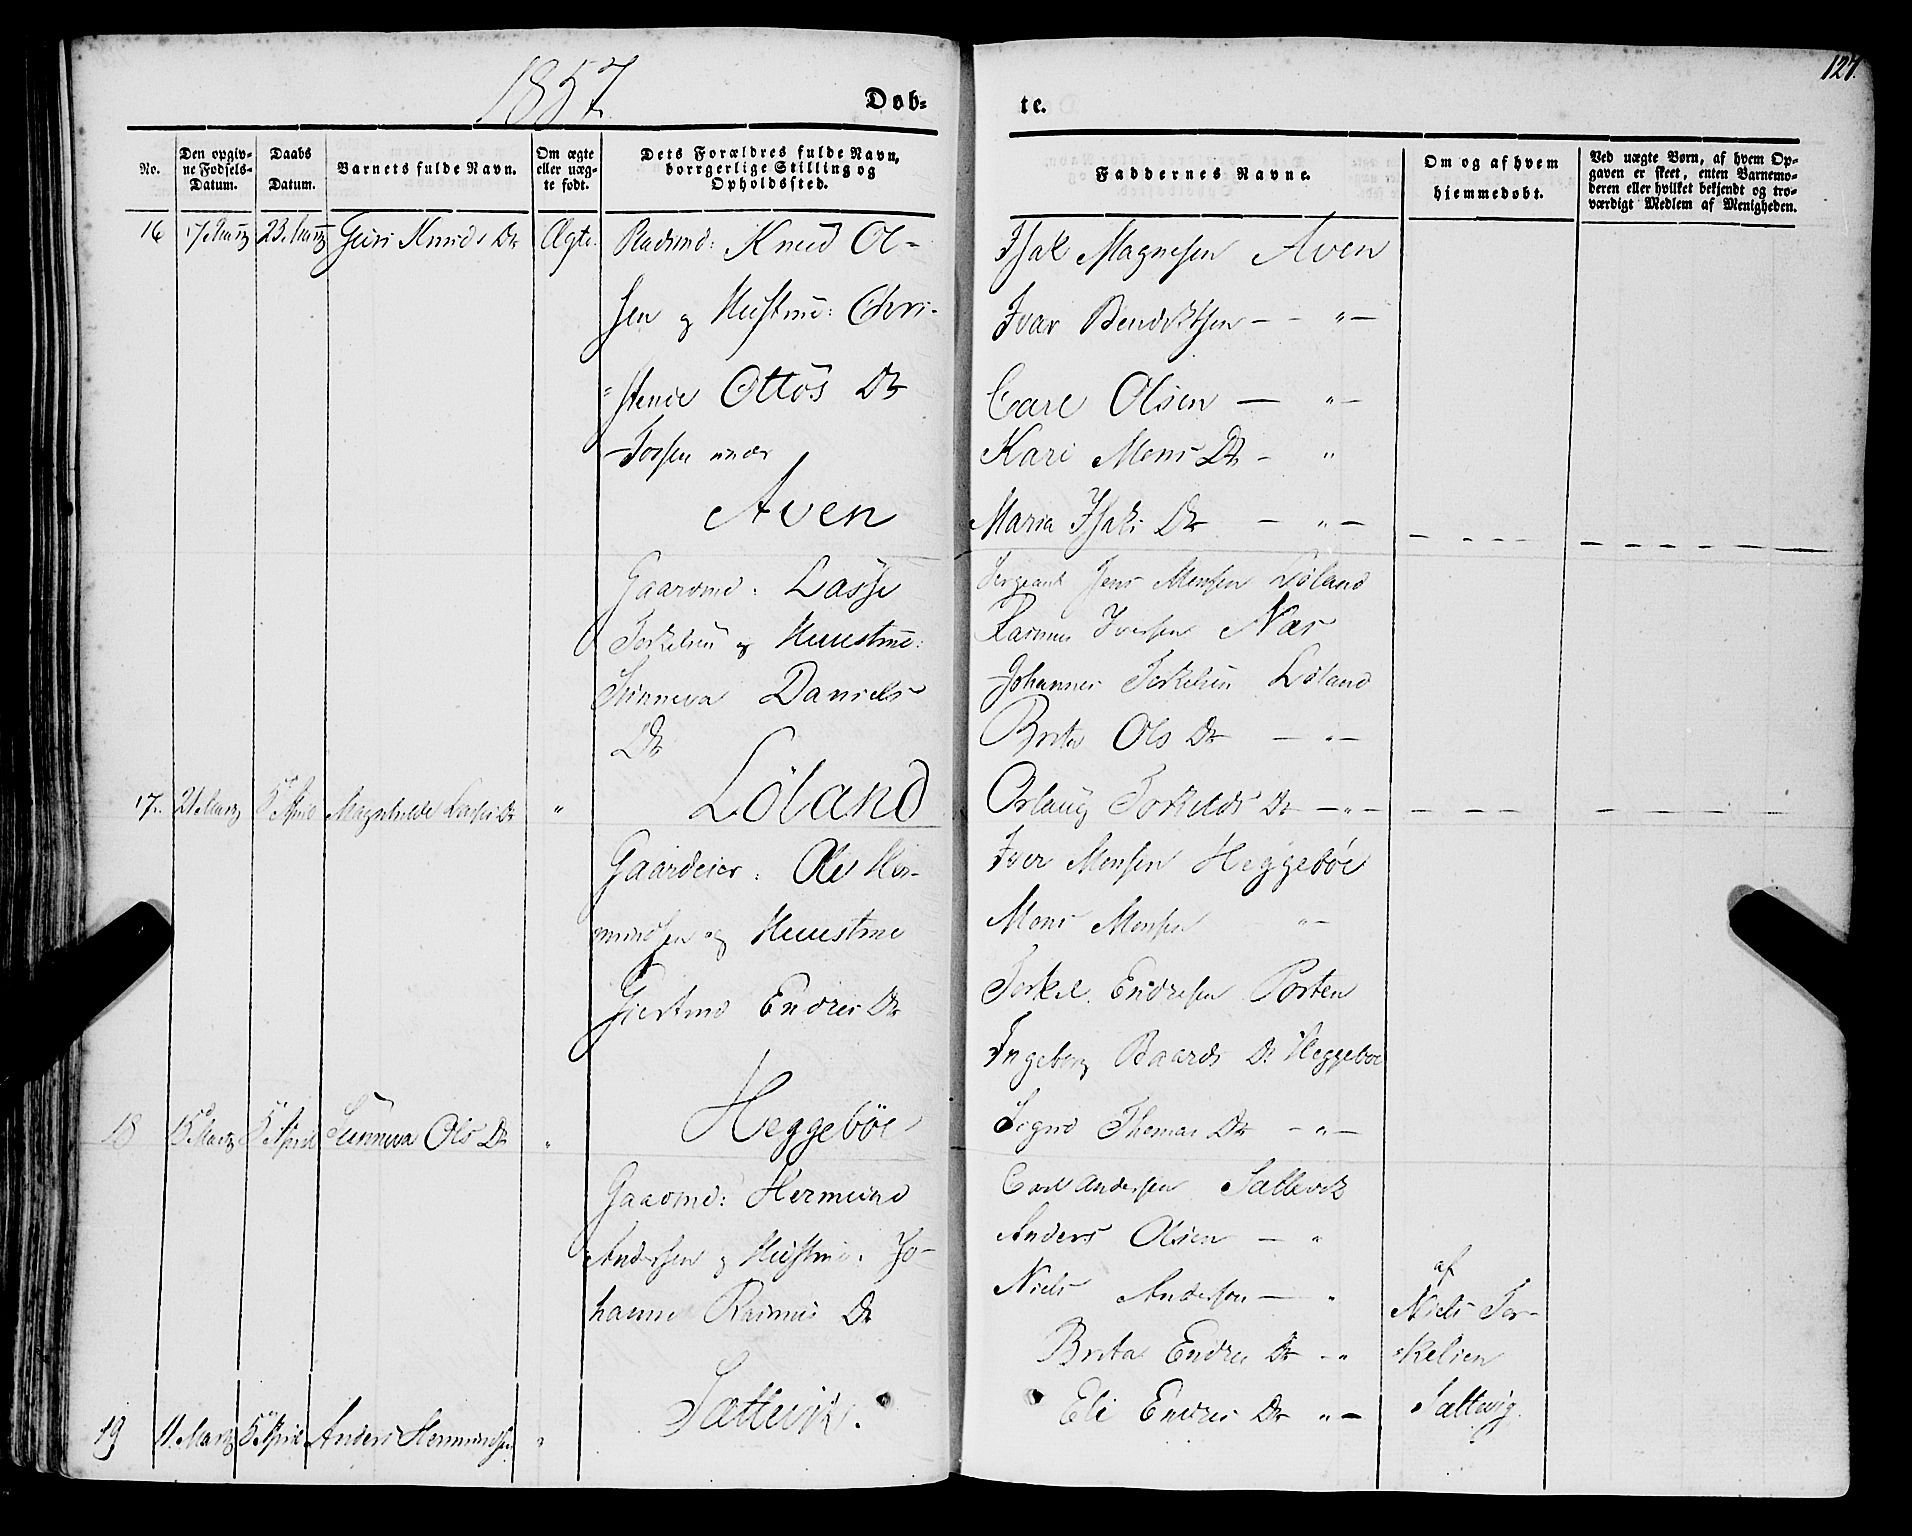 1857
127.
Døb-
te.
No.
Den opgiv-
ne Fødsels-
Datum.
Daabs
Datum.
Barnets fulde Navn.
Om ægte
eller uæg-
te født.
Dets Forældres fulde Navn,
borrgerlige Stilling og
Opholdssted.
Faddernes Navne.
Om og af hvem
hjemmedøbt.
Ved uægte Børn, af hvem Op-
gaven er skeet, enten Barnemo-
deren eller hvilket bekjendt og tro-
værdigt Medlem af Menigheden.
16 17 Martz 23 Martz Guri Knuds Dr Ægte
Knud Ol-
sen og Hustrue: Chri-
stence Ottos Dr
Fossen under
Aven
Isak Magnesen Aven
Ivar Bendiktsen — - " —
Carl Olsen — " —
Kari Mons Dr - "
Maria Isaks Dr — " —
17. 21 Martz 5 April Magnhilde Lasses Dr "
Gaardmd: Lasse
Torkelsen og Huustrue:
Sunneva Daniels
Dr
Løland
Sergeant Jens Monsen Løland
Rasmus Iversen Nær
Johannes Torkelsen Løland
Brita Ols Dr — " —
Orlaug Torkelds Dr — " —
18 15 Martz 5 April Sunneva Ols Dr "
Gaardeier: Ole Her-
mundsen og Huustrue
Gjertrud Endres Dr
Heggebøe
Iver Monsen Heggebøe
Mons Monsen " —
Torkel Endresen Porten
Ingeborg Baards Dr Heggeboe
Signe Thomas Dr — " —
19 11. Martz 5 April Anders Hermundsen "
Gaardmd: Hermund
Andersen og Hustrue: Jo-
hanne Rasmus Dr
Sættevik.
Carl Andersen Sættevik
Anders Olsen — "
Niels Andersen — "
Brita Endres Dr — "
Eli Endres Dr " —
af
Niels Tor-
kelsen
Sættevig.